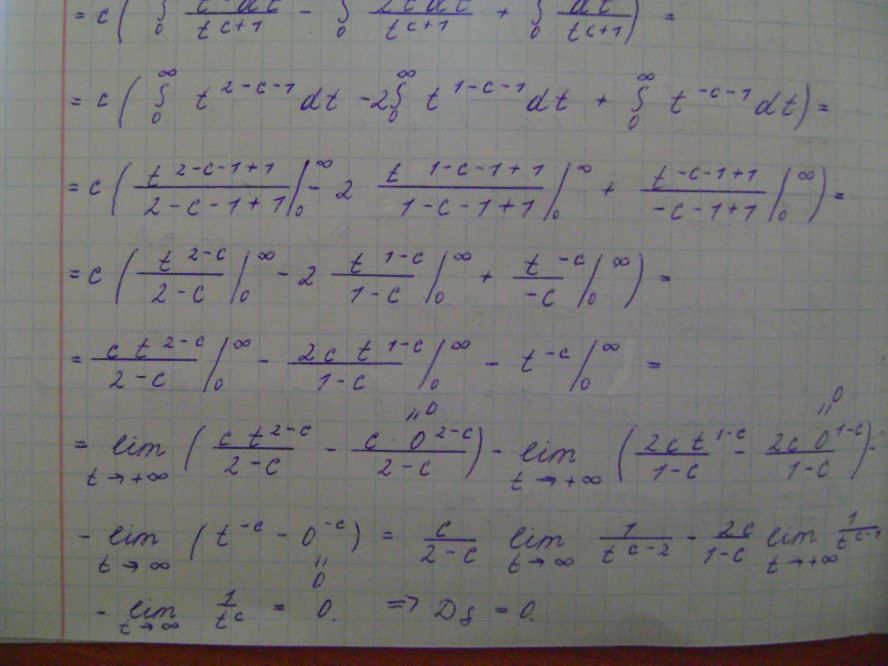 = c ( ∫₀ t² dt / t^{c+1} − ∫₀ 2t dt / t^{c+1} + ∫₀ dt / t^{c+1} ) =
= c ( ∫₀^∞ t^{2-c-1} dt − 2 ∫₀^∞ t^{1-c-1} dt + ∫₀^∞ t^{-c-1} dt ) =
= c ( t^{2-c-1+1} / (2-c-1+1) |₀^∞ − 2 t^{1-c-1+1} / (1-c-1+1) |₀^∞ + t^{-c-1+1} / (-c-1+1) |₀^∞ ) =
= c ( t^{2-c} / (2-c) |₀^∞ − 2 t^{1-c} / (1-c) |₀^∞ + t^{-c} / (-c) |₀^∞ ) =
= c t^{2-c} / (2-c) |₀^∞ − 2c t^{1-c} / (1-c) |₀^∞ − t^{-c} |₀^∞ =
"0 "0
= lim_{t→+∞} ( c t^{2-c} / (2-c) − c · 0^{2-c} / (2-c) ) − lim_{t→+∞} ( 2c t^{1-c} / (1-c) − 2c 0^{1-c} / (1-c) ) −
− lim_{t→∞} ( t^{-c} − 0^{-c} ) = c / (2-c) lim_{t→∞} 1 / t^{c-2} − 2c / (1-c) lim_{t→+∞} 1 / t^{c-1}
"0
− lim_{t→∞} 1 / t^c = 0. ⇒ Dξ = 0.